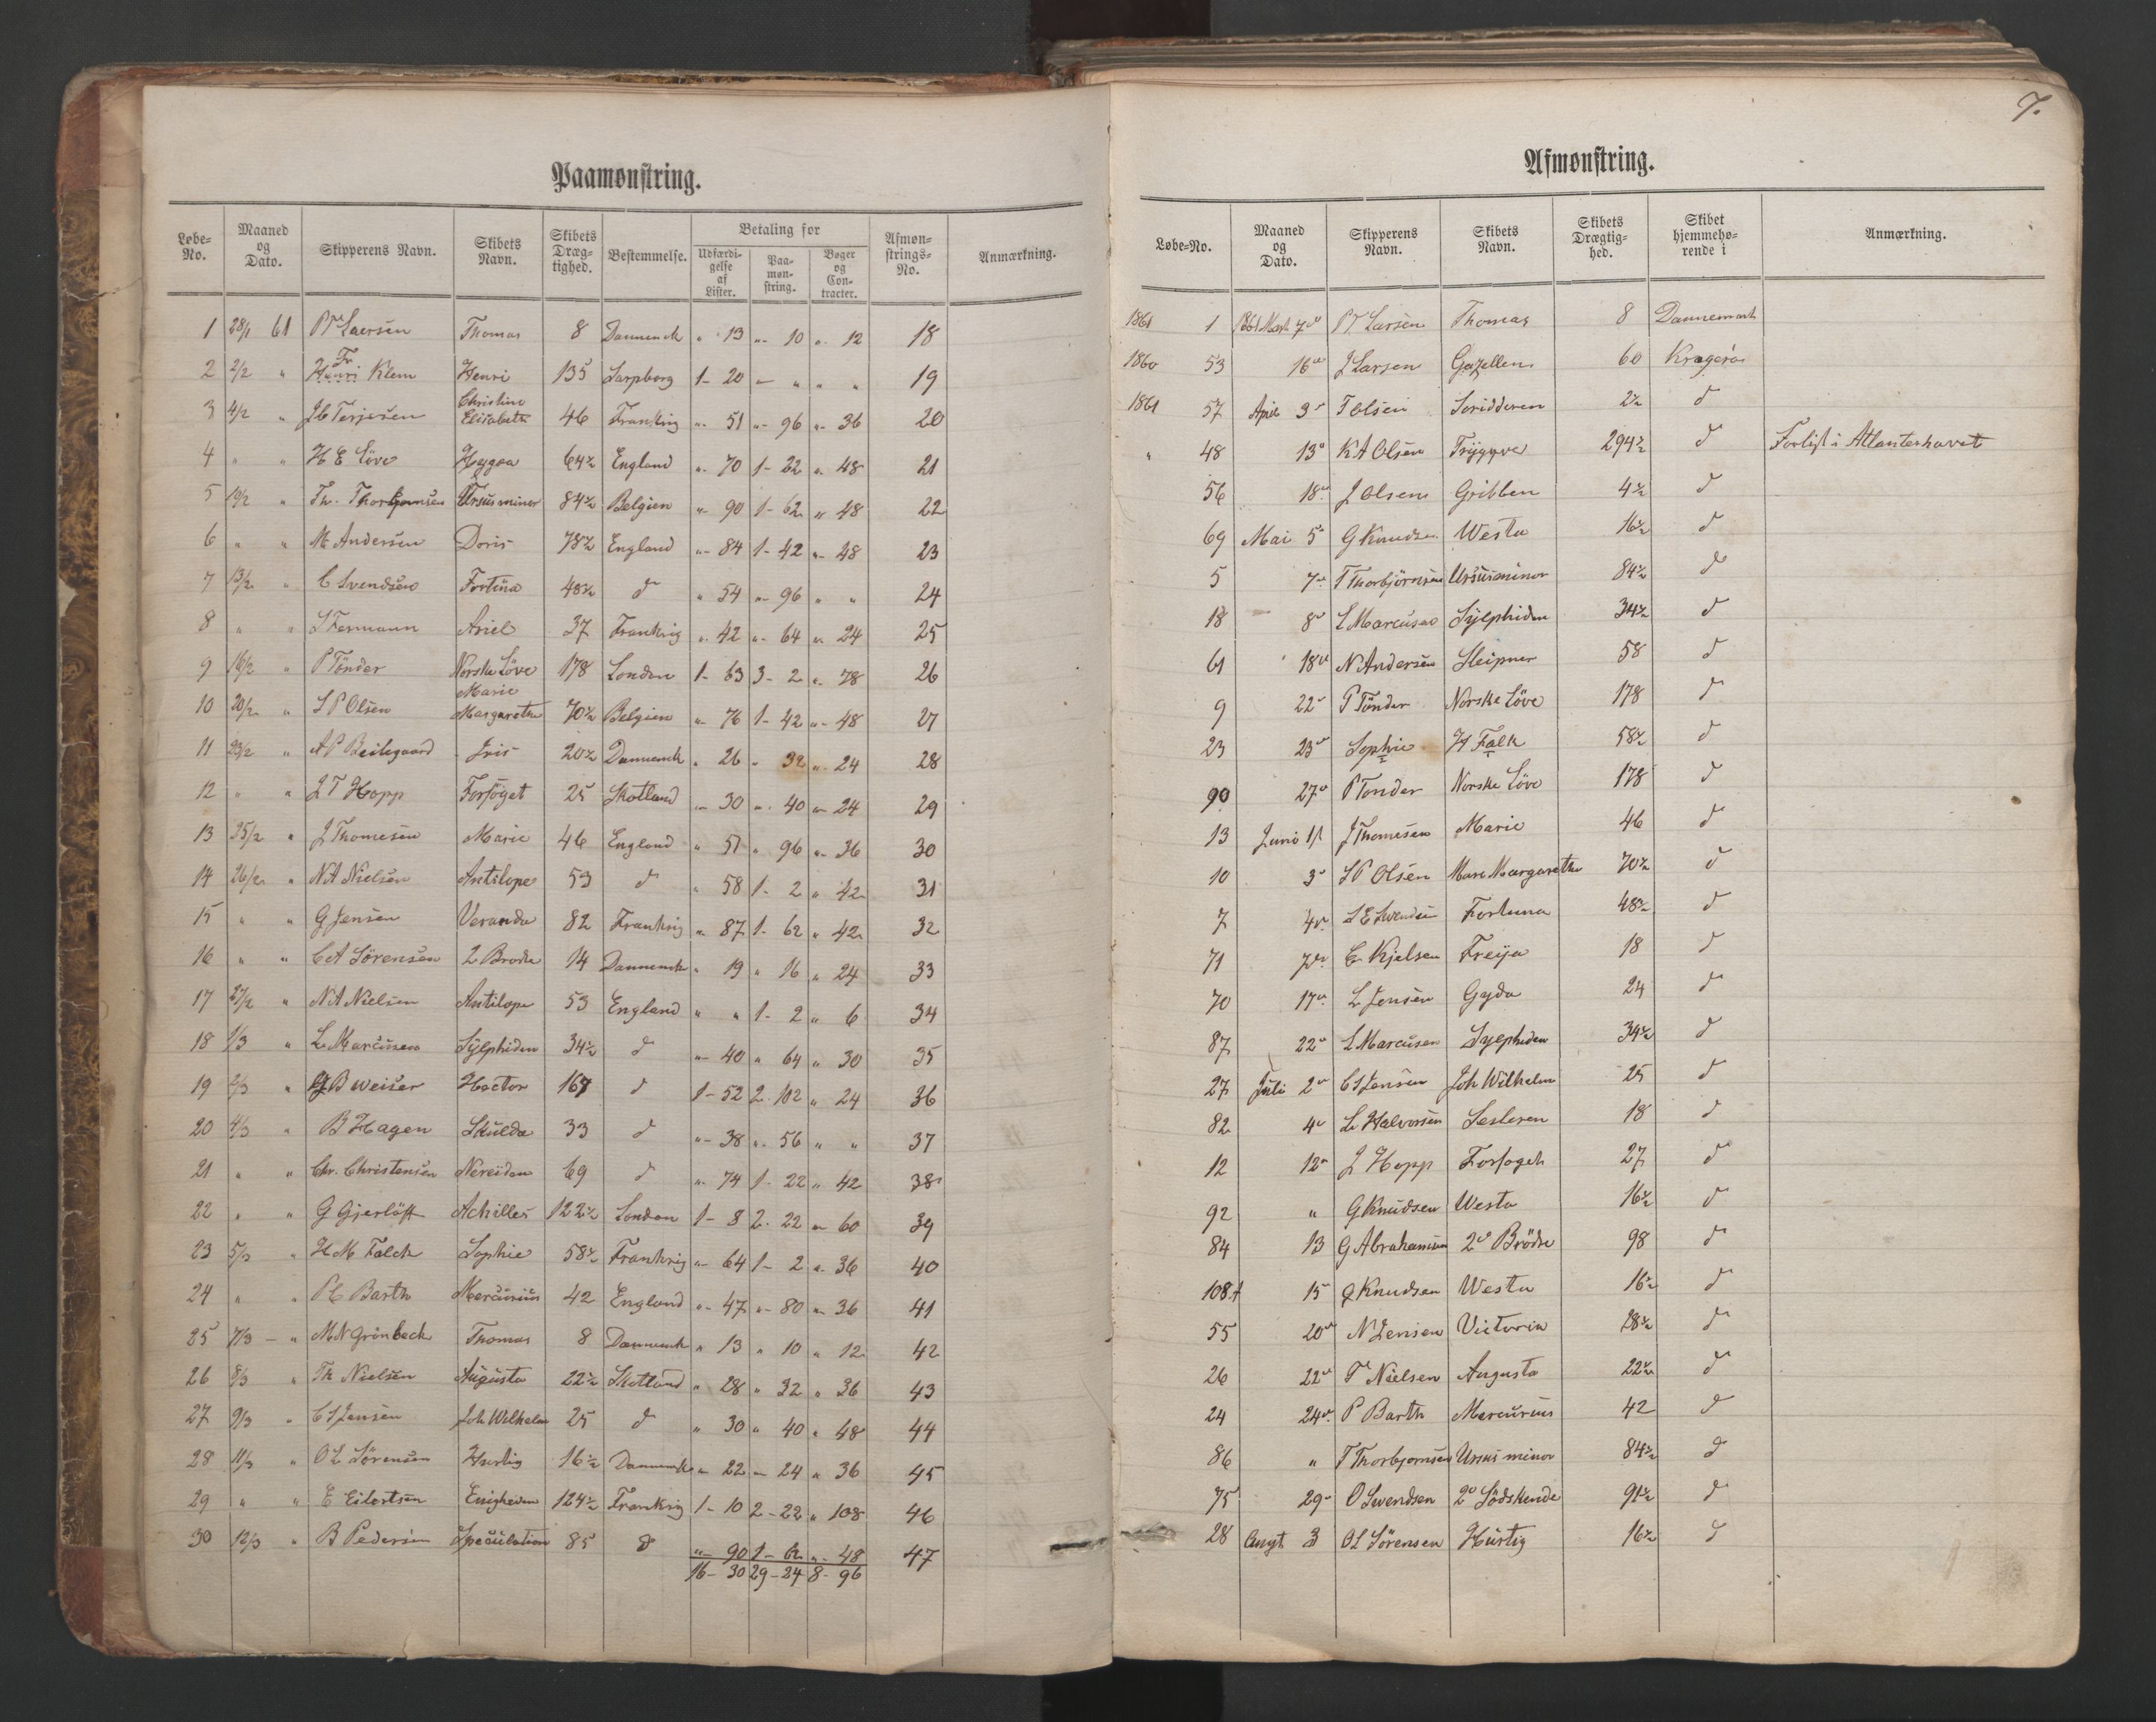 7.
Paamønstring.
Løbe-No. Maaned og Dato. Skipperens Navn. Skibets Navn. Skibets Drægtighed. Bestemmelse. Betaling for Udfærdigelse af Lister. Paamønstring. Bøger og Contracter. Afmønstrings-No. Anmærkning.
1 28/1 61 P T Laersen Thomas 8 Dannemk " 13 " 10 " 12 18
2 2/2 " Fr Klem Henri 135 Sarpborg 1 - 20 - " " " 19
3 4/2 " J C Terjesen Christine Elisabeth 46 Frankrig " 51 " 96 " 36 20
4 " " H E Löve Hygea 64½ England " 70 1 - 22 " 48 21
5 19/2 " Th. Thorbjornsen Ursus minor 84½ Belgien " 90 1 - 62 " 48 22
6 " " M Andersen Doris 78½ England " 84 1 - 42 " 48 23
7 13/2 " C Svendsen Fortuna 48½ d " 54 " 96 " " 24
8 " " S Fermann Ariel 37 Frankrig " 42 " 64 " 24 25
9 16/2 " P Tönder Norske Löve 178 London 1 - 63 3 - 2 " 78 26
10 20/2 " S P Olsen Marie Margarethe 70½ Belgien " 76 1 - 42 " 48 27
11 23/2 " A P Beilegaard Iris 20½ Dannemk " 26 " 32 " 24 28
12 " " J T Hopp Forsöget 25 Skotland " 30 " 40 " 24 29
13 25/2 " J Thomesen Marie 46 England " 51 " 96 " 36 30
14 26/2 " N A Nielsen Antilope 53 d " 58 1 - 2 " 42 31
15 " " G Jensen Veranda 82 Frankrig " 87 1 - 62 " 42 32
16 " " C A Sörensen 2 Brodre 14 Dannemk " 19 " 16 " 24 33
17 27/2 " N A Nielsen Antilope 53 England " " 1 - 2 " 6 34
18 1/3 " L Marcusen Sylphiden 34½ d " 40 " 64 " 30 35
19 2/3 " B Weiser Hector 167 d 1 - 52 2 - 102 " 24 36
20 4/3 " B Hagen Skulda 33 d " 38 " 56 " " 37
21 " " Chr. Christensen Nereiden 69 d " 74 1 - 22 " 42 38
22 " " G Gjerlöff Achilles 122½ London 1 - 8 2 - 22 " 60 39
23 5/3 " H M Falch Sophie 58½ Frankrig " 64 1 - 2 " 36 40
24 " " P C Barth Mercurius 42 England " 47 " 80 " 36 41
25 7/3 - " M N Grönbeck Thomas 8 Dannemk " 13 " 10 " 12 42
26 8/3 " Th Nielsen Augusta 22½ Skotland " 28 " 32 " 36 43
27 9/3 " C S Jensen Joh Wilhelm 25 d " 30 " 40 " 48 44
28 11/3 " O L Sörensen Hurtig 16½ Dannemk " 22 " 24 " 36 45
29 " " E Eilertsen Enigheden 124½ Frankrig 1 - 10 2 - 22 " 108 46
30 12/3 " B Pedersen Speculation 85 d " 90 1 - 62 " 48 47
16 - 30 29 - 24 8 - 96
Afmønstring.
Løbe-No. Maaned og Dato. Skipperens Navn. Skibets Navn. Skibets Drægtighed. Skibet hjemmehørende i Anmærkning.
1861 1 1861 Mart 7d P T Larsen Thomas 8 Dannemark
1860 53 16d J Larsen Gazellen 60 Kragerø
1861 57 April 3d T Olsen 2½ d
" 48 13d K A Olsen Tryggve 294½ d Forlist i Atlanterhavet
56 18d J Olsen Gribben 4½ d
69 Mai 5d G Knudsen Westa 16½ d
5 7d T Thorbjörnsen Ursus minor 84½ d
18 8d L Marcusen Sylphiden 34½ d
61 18d N Andersen Sleipner 58 d
9 22d P Tönder Norske Löve 178 d
23 23d Sophie H Falk 58½ d
90 27d P Tonder Norske Löve 178 d
13 Juni 1st J Thomesen Marie 46 d
10 3d S P Olsen Mare Margarethe 70½ d
7 4d S E Svendsen Fortuna 48½ d
71 7d E Kjelsen Freija 18 d
70 17d L Jensen Gyda 24 d
87 22d L Marcusen Sylphiden 34½ d
27 Juli 2d C S Jensen Joh Wilhelm 25 d
82 4d L Halvorsen 18 d
12 12d J Hopp Forsoget 27 d
92 " G Knudsen Westa 16½ d
84 13 G Abrahamsen 2d Brödre 98 d
108 15 G Knudsen Westa 16½ d
55 20d N Jensen Victoria 28½ d
26 22d T Nielsen Augusta 22½ d
24 24d P Barth Mercurius 42 d
86 " T Thorbjornsen Ursus minor 84½ d
75 29d O Svendsen 2d Södskende 91½ d
28 Augt 3 O L Sörensen Hurtig 16½ d